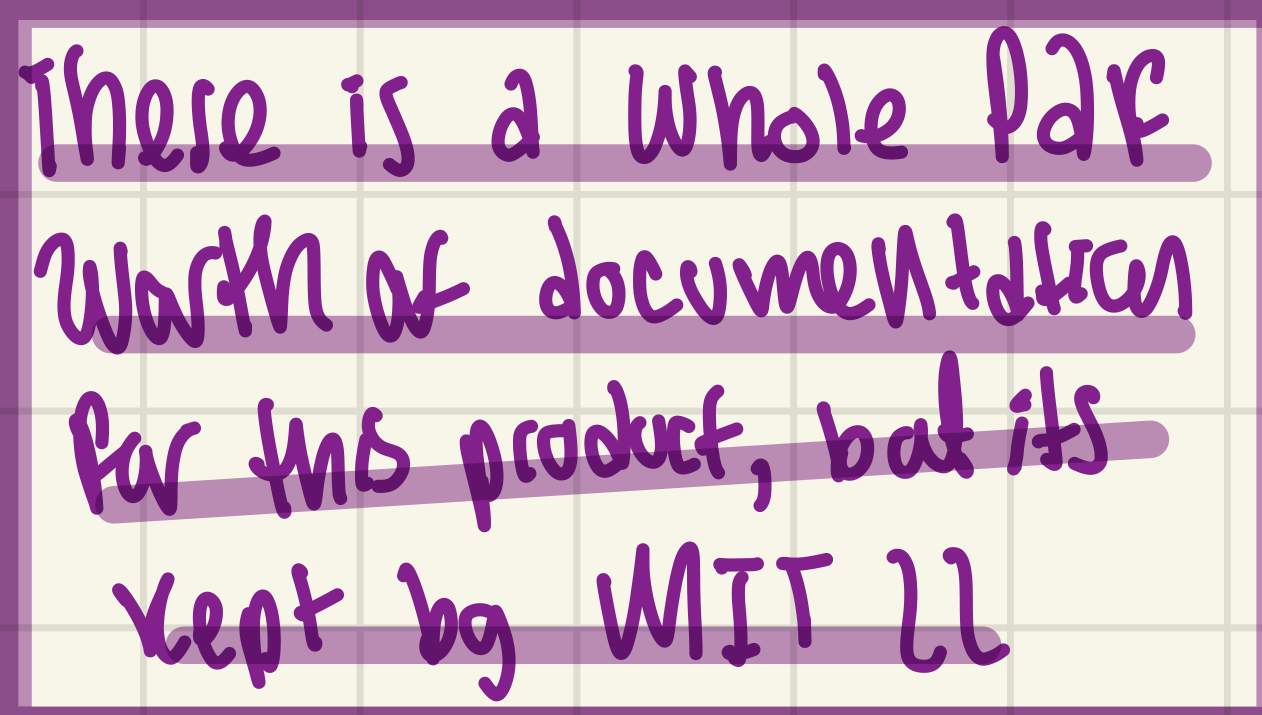 There is a whole PDF
worth of documentation
for this product, but its
kept by MIT LL